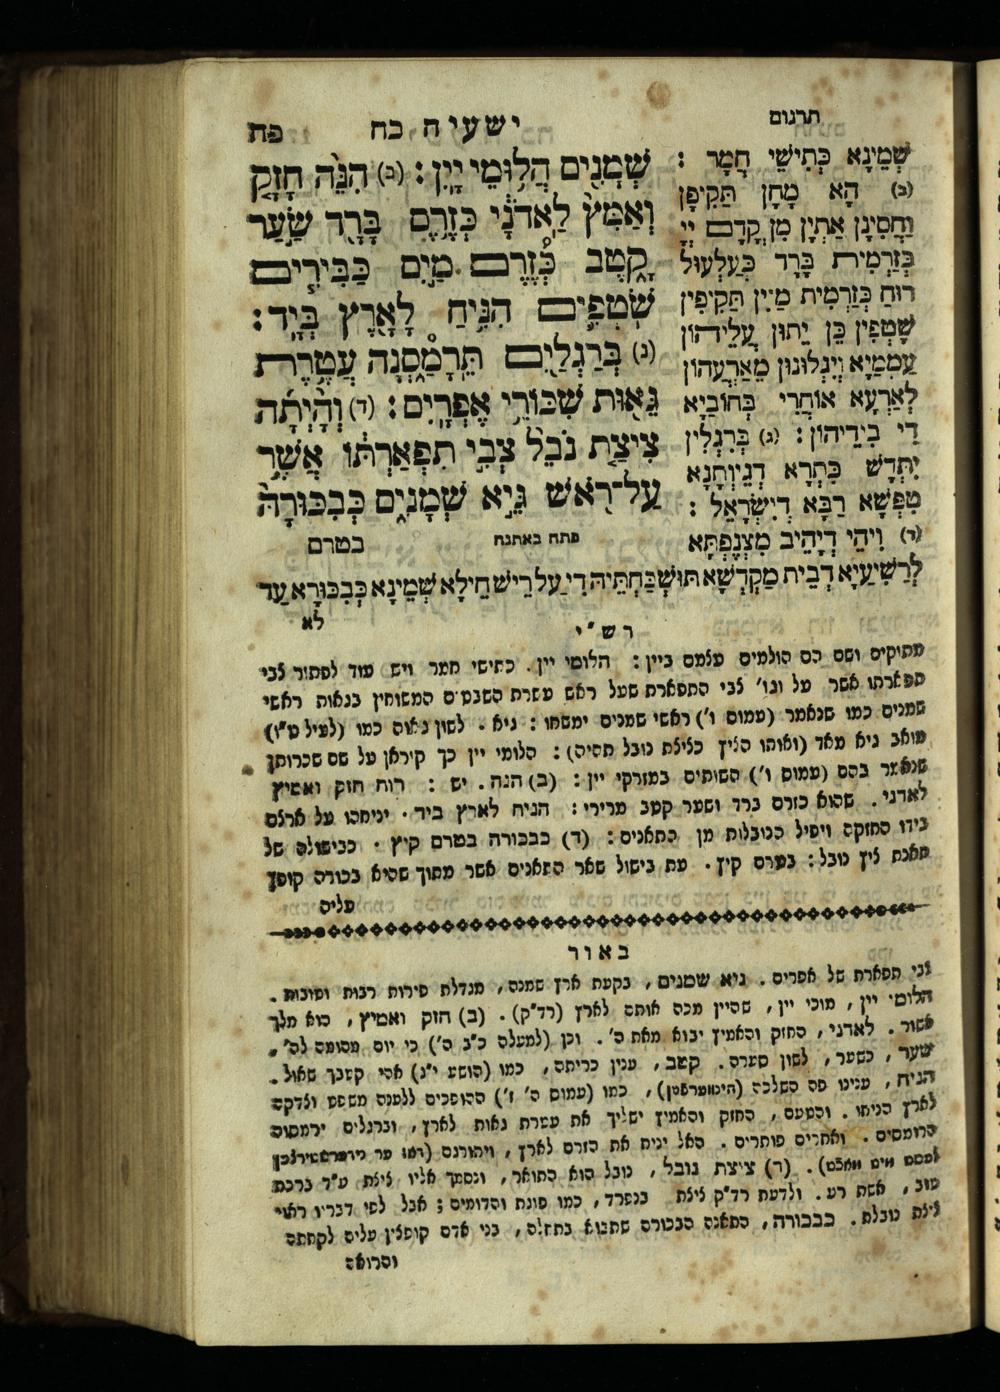 תרגום
ישעיה כח
פח
שְׁמֵינָא כְּתִישֵׁי חֲמָר :
(ב) הָא מָחָן תַּקִיפָן
וַחֲסִינָן אַתְיָן מִן קֳדָם יְיָ
כְּזַרְמִית בָּרָד כְּעַלְעוּל
רוּחַ כְּזַרְמִית מַיִן תַּקִיפִין
שָׁטְפִין כֵּן יֵתוּן עֲלֵיהוֹן
עַמְמַיָא וְיִגְלוּנוּן מֵאַרְעֲהוֹן
לְאַרְעָא אוֹחֲרִי בְּחוֹבַיָא
דִי בִידֵיהוֹן : (ג) בְּרִגְלִין
יִתְּדָשׁ כִּתְרָא דְגֵיוְתָנָא
טִפְּשָׁא רַבָּא דְיִשְׂרָאֵל :
(ד) וִיהֵי דְיָהֵיב מִצְנֶפְתָּא
שְׁמָנִים הֲלוּמֵי יָיִן : (ב) הִנֵּה חָזָק
וְאַמִּץ לַאדֹנָי כְּזֶרֶם בָּרָד שַׂעַר
קָטֶב כְּזֶרֶם מַיִם כַּבִּירִים
שֹׁטְפִים הִנִּיחַ לָאָרֶץ בְּיָד :
(ג) בְּרַגְלַיִם תֵּרָמַסְנָה עֲטֶרֶת
גֵּאוּת שִׁכּוֹרֵי אֶפְרָיִם : (ד) וְהָיְתָה
צִיצַת נֹבֵל צְבִי תִפְאַרְתּוֹ אֲשֶׁר
עַל־רֹאשׁ גֵּיא שְׁמָנִים כְּבִכּוּרָהּ
פתח באתנח
בטרם
לְרַשִׁיעַיָא דְבֵית מַקְדְשָׁא תּוּשְׁבַּחְתֵּיהּ דִי עַל רֵישׁ חֵילָא שְׁמֵינָא כְּבִכּוּרָא עַד
לא
רש"י
מתוקים ושם הם הולמים עצמם ביין : הלומי יין . כתישי חמר ויש עוד לפתור צבי
תפארתו אשר על וגו' צבי התפארת שעל ראש עשרת השבטים המשוחין בגאות ראשי
שמנים כמו שנאמר (עמוס ו') ראשי שמנים ימשחו : גיא . לשון גאוה כמו (לעיל ט"ז)
מואב גיא מאד (ואותו הציץ כציצת נובל תהיה) : הלומי יין כך קוראן על שם שכרותן
שנאמר בהם (עמוס ו') השותים במזרקי יין : (ב) הנה . יש : רוח חזק ואמיץ
לאדני . שהוא כזרם ברד ושער קטב מרירי : הניח לארץ ביד . יניחהו על ארצם
בידו החזקה ויפיל הנובלות מן התאנים : (ד) כבכורה בטרם קיץ . כבישולה של
תאנת ציץ נובל : בטרם קיץ . עת בישול שאר התאנים אשר מתוך שהיא בכורה קופץ
עליה
באור
צבי תפארת של אפרים . גיא שמנים , בקעת ארץ שמנה , מגדלת פירות רבות וטובות .
הלומי יין , מוכי יין , שהיין מכה אותם לארץ (רד"ק) . (ב) חזק ואמיץ , הוא מלך
אשור . לאדני , החזק והאמיץ יבוא מאת ה' . וכן (למעלה כ"ב ה') כי יום מהומה לה' .
שער , כשער , לשון סערה . קטב , ענין כריתה , כמו (הושע י"ג) אהי קטבך שאול .
הניח , ענינו פה השלכה , כמו (עמוס ה' ז') ההופכים ללענה משפט וצדקה
לארץ הניחו . והטעם , החזק והאמיץ ישליך את עטרת גאות לארץ , וברגלים ירמסוה
הרומסים . ואחרים פותרים . האל יניח את הזרם לארץ , ויתורגם
(ד) ציצת נובל , נובל הוא התואר , ונסמך אליו ציצת ע"ד ברכת
טוב , אשת רע . ולדעת רד"ק ציצת בנפרד , כמו פונת והדומים ; אבל לפי דבריו ראוי
ציצת נובלת . כבכורה , התאנה הבכורה שתבוא בתחלה , בני אדם קופצין עליה לקחתה
והרואה